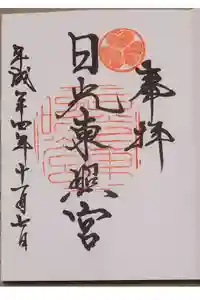 奉拝
日光東照宮
平成廿四年十一月七日